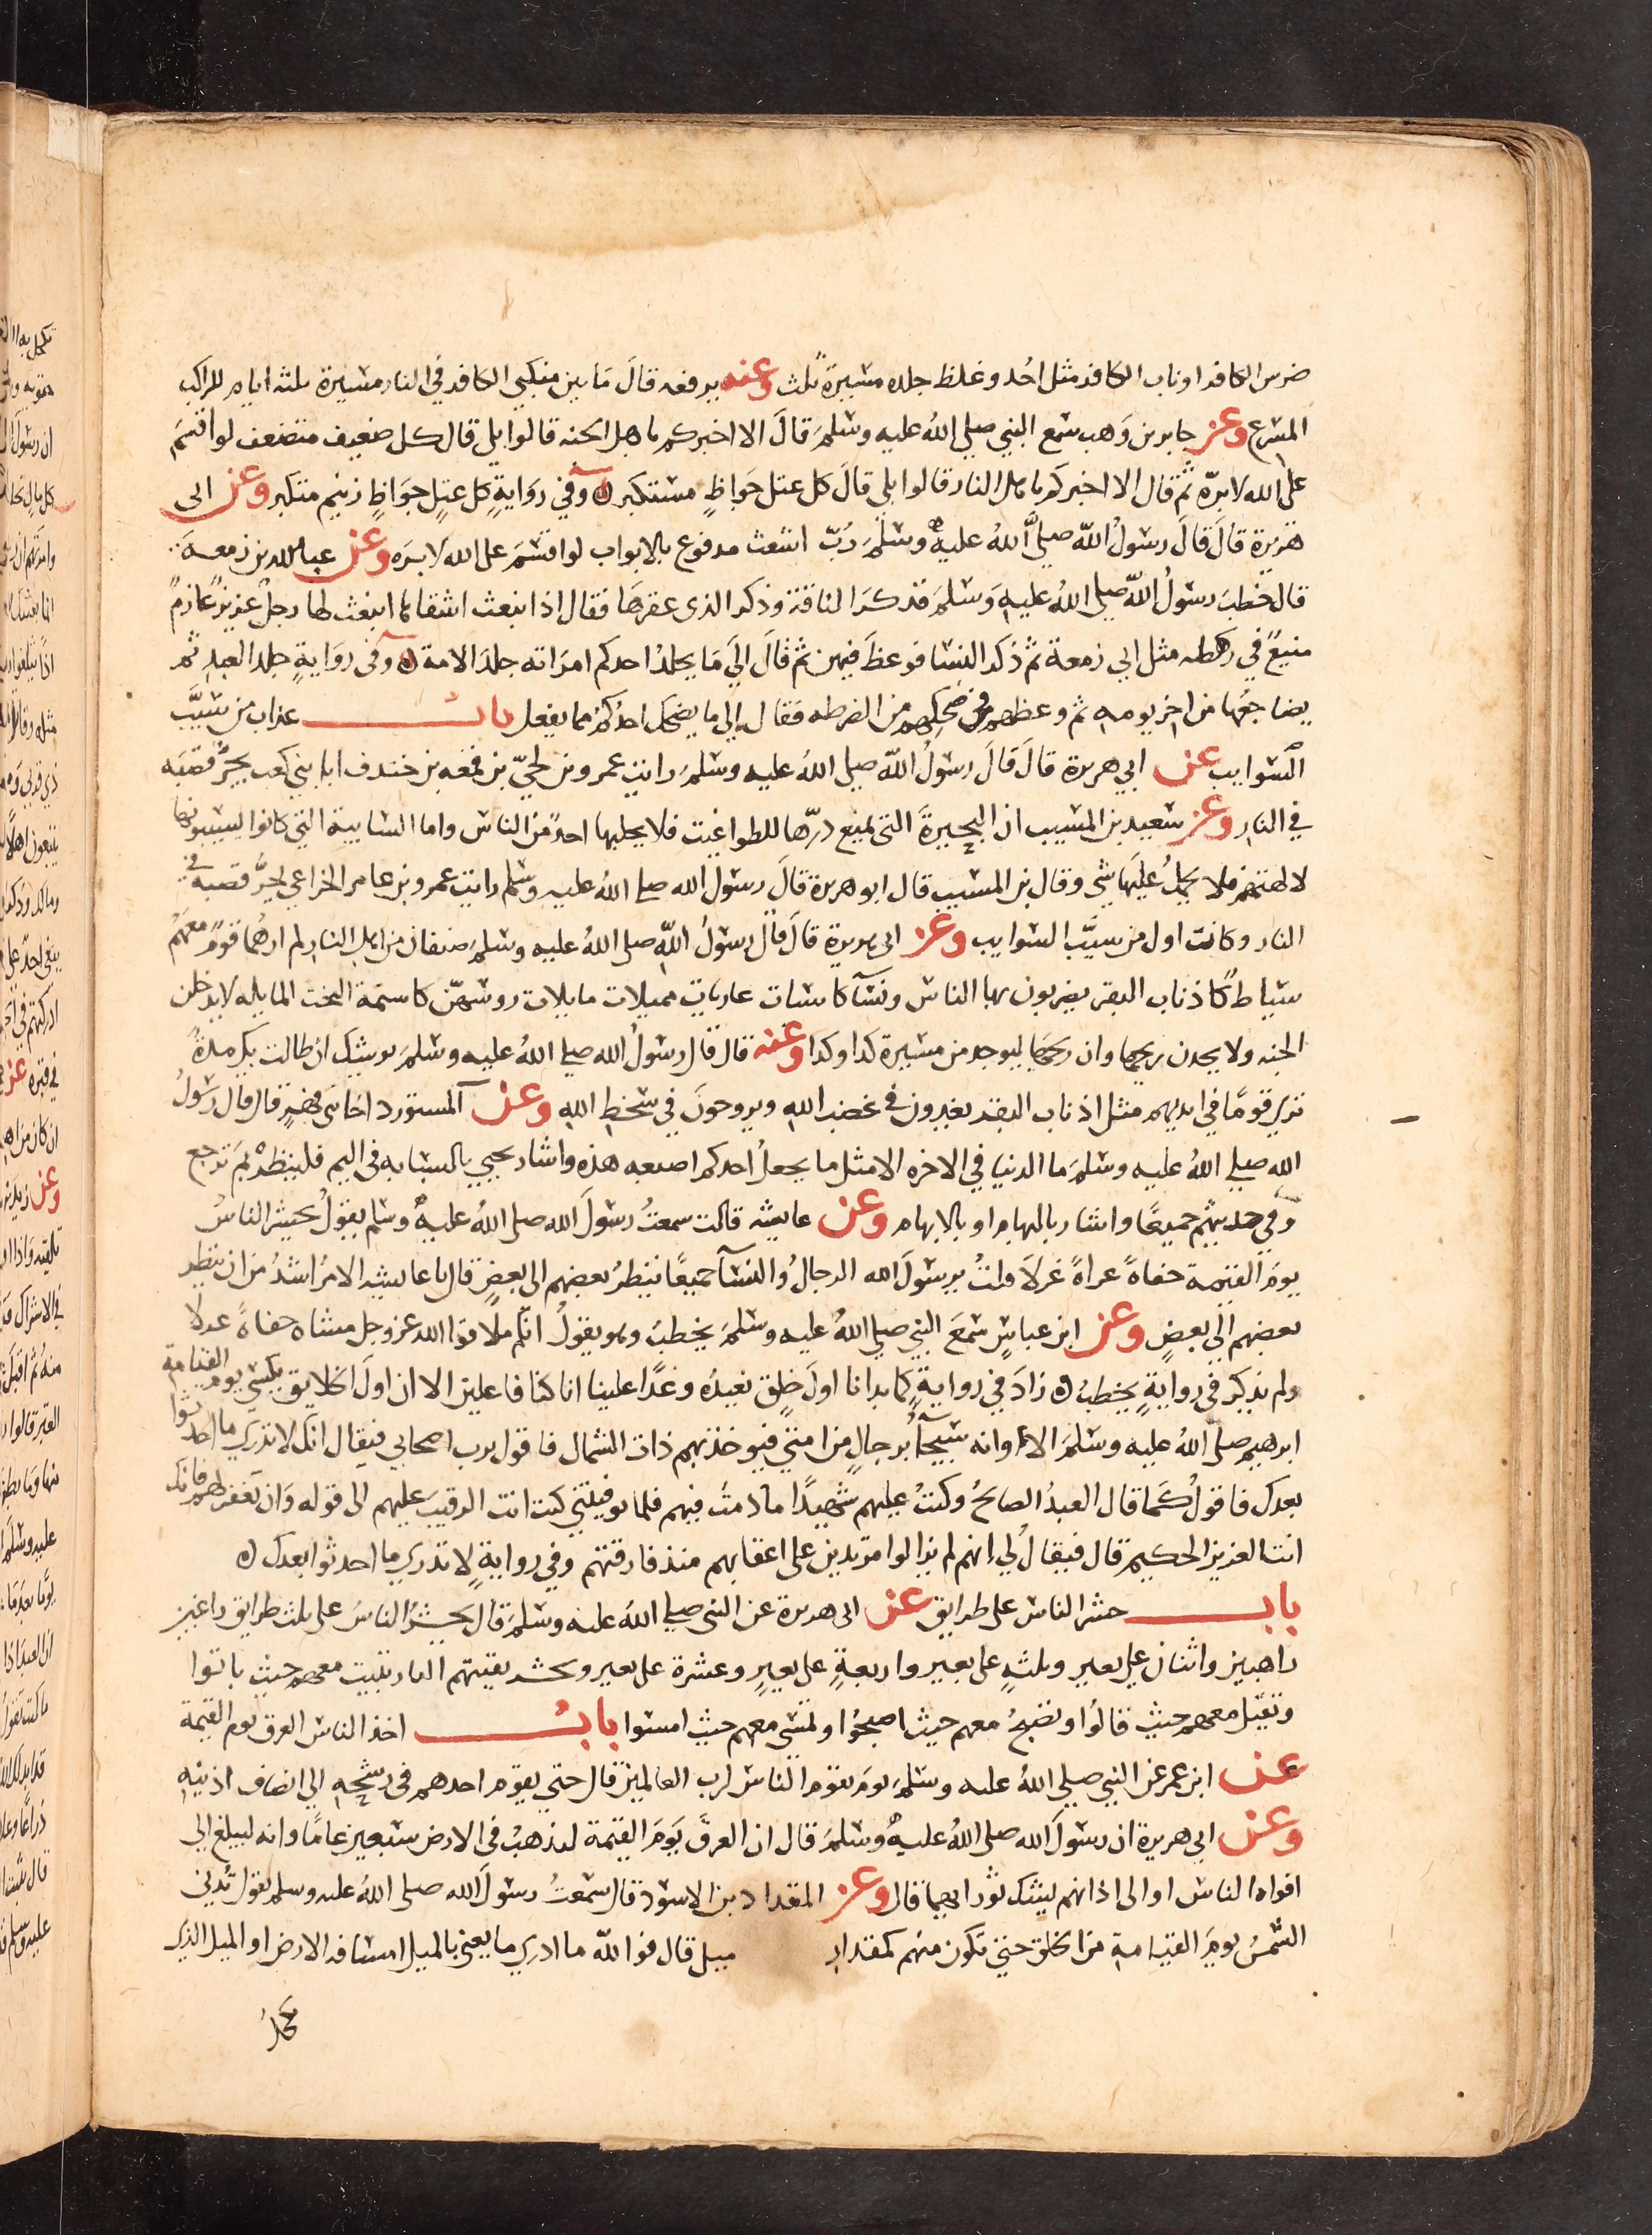 ضرس الكافر او ناب الكافر مثل احُد وغلظ جلده مسيرة ثلث وعنه يرفعه قالَ مَا بين منكبي الكافر في النار مسيرة ثلثه ايام للراكب
المسرع وعن جابر بن وَهب سمع النبي صلي اللهُ عليه وسلمَ قالَ الا اخبركم باهل الجنه قالوا بلي قال كل ضعيف متضعف لو اقسَم
على الله لابرّه ثم قال الا اخبركم باهل النار قالوا بلى قالَ كل عتل جَواظٍ مستكبر ه وفي روَايةٍ كل عتلٍ جوَاظٍ زنيم متكبر وعن ابى
هريرة قالَ قالَ رسولُ اللهِ صلى اللهُ عليه وسلمَ رُبّ اشعث مدفوع بالابواب لو اقسَمَ على الله لابرَه وعن عبد الله بن زمعـة
قال خطبَ رسولُ اللهِ صلي اللهُ عليهِ وَسلمَ فذكرَ الناقة وذكر الذى عقرهَا فقال اذ انبعث اشقاها انبعث لها رجلٌ عزيزٌ عَارمٌ
منيعٌ في رهطه مثل ابي زمعة ثم ذكر النسا فوعظَ فيهن ثم قالَ اِلَي مَا يجلدُ احدكم امرَاته جلدَ الامة ه وفى روَايةٍ جلدَ العبدِ ثم
يضاجعُها من اخر يومه ثم وعظهم في ضحكِهم من الضرطه فقال الي ما يضحك احدُكم مما يفعل بابــــ عذاب من سَيَّب
السوايب عن ابي هريرة قالَ قالَ رسولُ اللهِ صلى اللهُ عليه وسلمَ رايت عمرو بن لحيّ بن قمعه بن خندف ابا بني كعب يجرُّ قصبَه
في النار وعن سعيد بن المسيب ان البحيرةَ التى يمنع دَرّها للطواغيت فلا يحلبها احدٌ من الناس واما السايبة التي كانوا يسيبونها
لالهتهم فلا يحملُ عليَها شي وقال بن المسيب قال ابو هريرة قالَ رسولُ الله صلى اللهُ عليه وسلم رايت عمرو بن عامر الخزاعي يجرُّ قصبه في
النار وكانت اول من سيَّب السوايب وعن ابي هريرة قالَ قال رسولُ اللهِ صلى اللهُ عليه وسلمَ صنفان من اهل النار لم ارهُما قومٌ معَهُم
سياط كاذناب البقر يضربون بها الناس ونسآ كاسيات عاريات مميلات مايلات روسهن كاسنمة البخت المايله لا يدخلن
الجنه ولا يجدن ريحها وان ريحَها ليوجد من مسيرة كدا وكدا وعنه قال قال رسولُ الله صلى اللهُ عليه وسلمَ يوشك ان طالت بك مدةٌ
تري قومًا في ايديهم مثل اذناب البقر يغدون في غضبِ اللهِ ويروحونَ في سخطِ اللهِ وعن المستورد اخا بني فهرٍ قال قال رسولُ
الله صلى اللهُ عليه وسلمَ ما الدنيا في الاخره الا مثل ما يجعلُ احدكم اصبعه هذه واشار يحيي بالسبابه في اليم فلينظرْ بم ترجع
وفي حديثهم جميعًا واشار بالبهام او بالابهام وعن عايشه قالت سمعتُ رسولَ الله صلى اللهُ عليهِ وسلم يقولُ يحشر الناسُ
يومَ القيمة حفاةً عراةً غرلاً قلتُ يرسولَ الله الرجالُ والنسآ جميعًا ينظرُ بعضهم الى بعضٍ قال يا عايشه الامرُ اشدُ من ان ينظر
بعضهم الي بعضٍ وعن ابن عباسٍ سمعَ النبي صلي اللهُ عليه وسلمَ يخطبُ وهو يقولُ انكم ملاقوا الله عز وجل مشاة حفاةً عرلا
ولم يذكر في روايةٍ يخطبُ ه زادَ في روايةٍ كما بدانا اولَ خلقٍ نعيدُه وعدًا علينا انا كنا فاعلين الا ان اولَ الخلايق يكسي يومَ القيامةِ
ابرهيم صلى اللهُ عليه وسلمَ الا وانه سيجآُ برجالٍ من امتي فيوخذ بهم ذات الشمال فاقول يرب اصحابي فيقال انك لا تدري ما احدثوا
بعدك فاقولُ كما قال العبدُ الصالحُ وكنتُ عليهم شهيدًا ما دمتُ فيهم فلما توفيتني كنت انت الرقيبَ عليهم الى قوله وَان تغفر لهم فانك
انت العزيز الحكيم قال فيقالُ لي انهم لم يزالوا مرتدين على اعقابهم منذ فارقتهم وفي روايةٍ لا تدري ما احدثوا بعدك ه
بابـــــ حشر الناس على طرايق عن ابى هريرة عن النبى صلي اللهُ عليه وسلمَ قال يحشرُ الناسُ على ثلث طرايق راغبين
راهبين واثنان على بعير وثلثهٍ على بعير واربعةٍ على بعيرٍ وعشرة على بعير وتحشر بقيتهم النار تبيت معهم حيث باتوا
وتقيل معهم حيث قالوا وتصبحُ معهم حيث اصبحوا وتمسي معهم حيث امسوا بابُـــــ اخذ الناس العرق يوم القيمة
عن ابن عمر عن النبي صلى اللهُ عليه وسلمَ يومَ يقومُ الناس لرب العالمين قال حتي يقوم احدهم فى رشحهِ الي انصاف اذنيهِ
وعن ابي هريرة ان رسولَ الله صلى اللهُ عليهِ وسلمَ قال ان العرقَ يَومَ القيمة ليذهبُ في الارض سبعين عامًا وانه ليبلغ الي
افواه الناسِ او الى اذانهم يشك ثور ايهما قال وعن المقداد بن الاسود قال سمعتُ رسولَ الله صلى اللهُ عليه وسلم يقول تُدني
الشمسُ يومَ القيامةِ من الخلق حتي تكون منهم كمقدار ميل قال فوالله ما ادري ما يعني بالميل امسافه الارض او الميل الذي